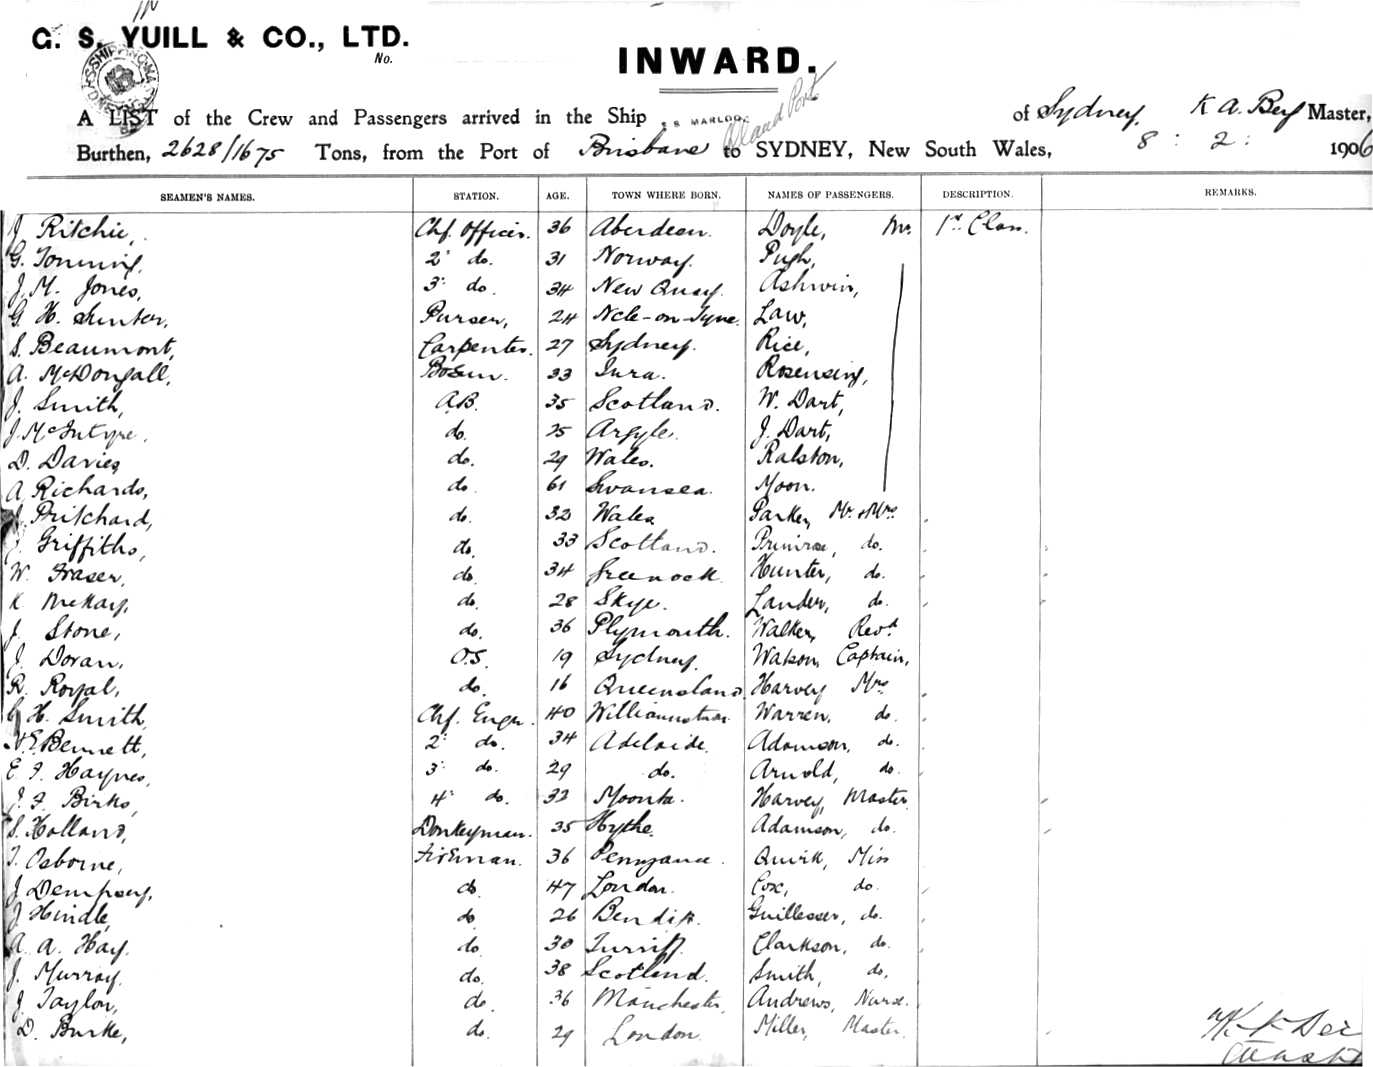 G. S. YUILL & CO., LTD.
No.
INWARD.
A LIST of the Crew and Passengers arrived in the Ship S S MARLOO. of Sydney, K A. Master,
Burthen, 2628/1675 Tons, from the Port of Brisbane and Port to SYDNEY, New South Wales, 8 : 2 : 1906
SEAMEN'S NAMES. STATION. AGE. TOWN WHERE BORN. NAMES OF PASSENGERS. DESCRIPTION. REMARKS.
J Ritchie, Chf. Officer. 36 Aberdeen. Doyle, Mr. 1st Class.
G. 2d do. 31 Norway. Pugh,
J. M. Jones, 3d do. 34 New Quay. Ashwin,
G H. Sunter, Purser, 24 Ncle-on-Tyne. Law,
S. Beaumont, Carpenter. 27 Sydney. Rice,
A. McDongall, Bosun. 33 Jura. Rosensing,
J. Smith, A.B. 35 Scotland. W. Dart,
J. McIntyre. do. 25 Argyle. J. Dart,
D. Davies, do. 29 Wales. Ralston,
A Richards, do. 61 Swansea. Moon.
J. Pritchard, do. 32 Wales Parker, Mr. & Mrs.
J. Griffiths, do. 33 Scotland. Primrose, do.
W. Fraser, do. 34 Greenock. Hunter, do.
K McKay, do. 28 Skye. Lander, do.
J. Stone, do. 36 Plymouth. Walker, Revd.
J. Doran, O.S. 19 Sydney. Watson, Captain,
R. Royal, do. 16 Queensland. Harvey Mrs
C H. Smith, Chf. Engr. 40 Williamstown. Warren, do.
N. E. Bennett, 2d do. 34 Adelaide. Adamson, do.
E. F. Haynes, 3d do. 29 do. Arnold, do.
J. F. Birks, 4th do. 32 Moonta. Harvey, Master
S. Holland, Donkeyman. 35 Hythe. Adamson, do.
T. Osborne, Fireman. 36 Penzance. Quirk, Miss
J Dempsey, do. 47 London. Cox, do.
J Hindle, do 26 Bendigo. do.
A. A. Hay. do 30 Turriff. Clarkson, do.
J. Murray. do. 38 Scotland. Smith, do.
J. Taylor, do. 36 Manchester, Andrews, Nurse.
D. Burke, do. 29 London. Miller, Master.